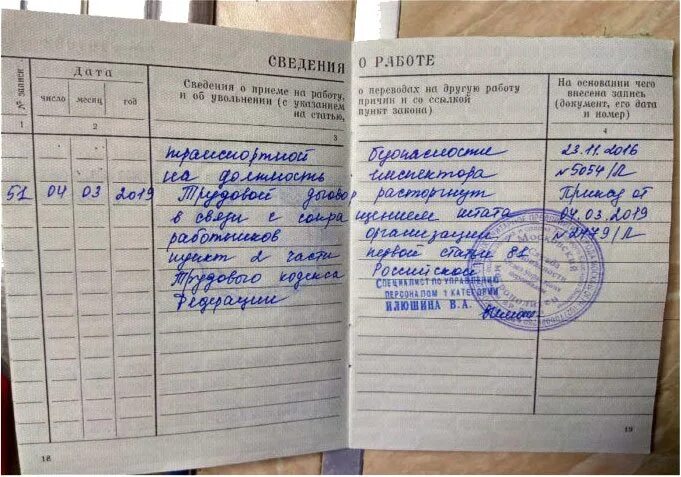 СВЕДЕНИЯ О РАБОТЕ
№ записи
Дата
число месяц год
Сведения о приеме на работу, о переводах на другую работу
и об увольнении (с указанием причин и со ссылкой
на статью, пункт закона)
На основании чего
внесена запись
(документ, его дата
и номер)
1 2 3 4
транспортной безопасности 23.11.2016
на должность инспектора №5054/Л
51 04 03 2019 Трудовой договор расторгнут Приказ от
в связи с сокращением штата 04.03.2019
работников организации №2779/Л
пункт 2 части первой статьи 81
Трудового кодекса Российской
Федерации
СПЕЦИАЛИСТ ПО УПРАВЛЕНИЮ
ПЕРСОНАЛОМ 1 КАТЕГОРИИ
ИЛЮШИНА В.А.
Московский
18
19